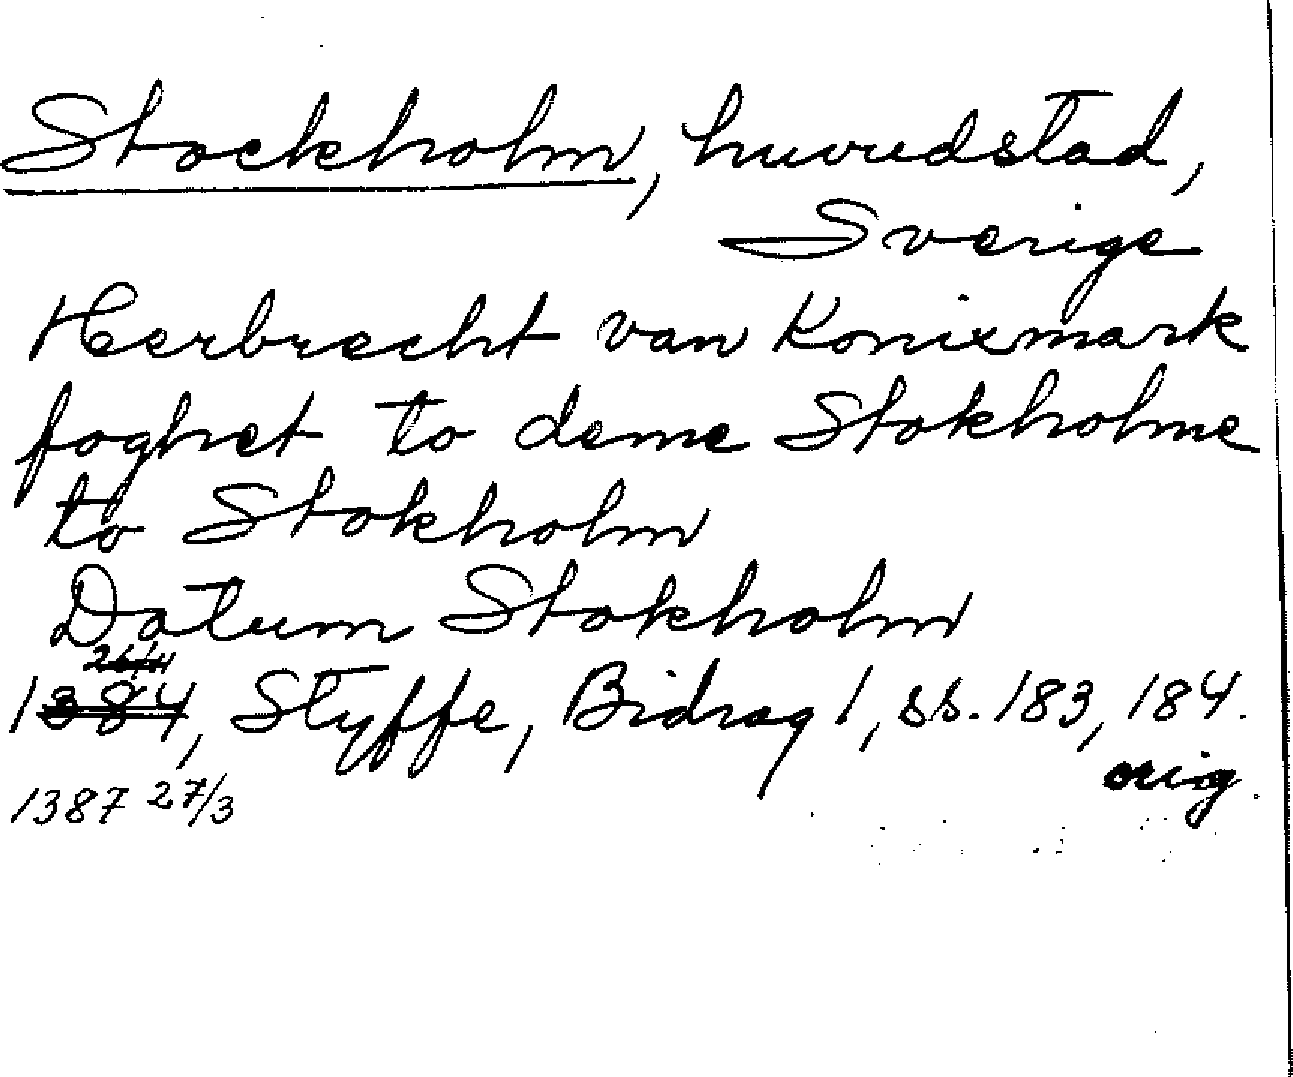 Stockholm, huvudstad,
Sverige
Herbrecht van Konixmark
foghet to deme Stokholme
to Stokholm
Datum Stokholm
1384, Styffe, Bidrag 1, ss. 183, 184.
orig.
1387 27/3